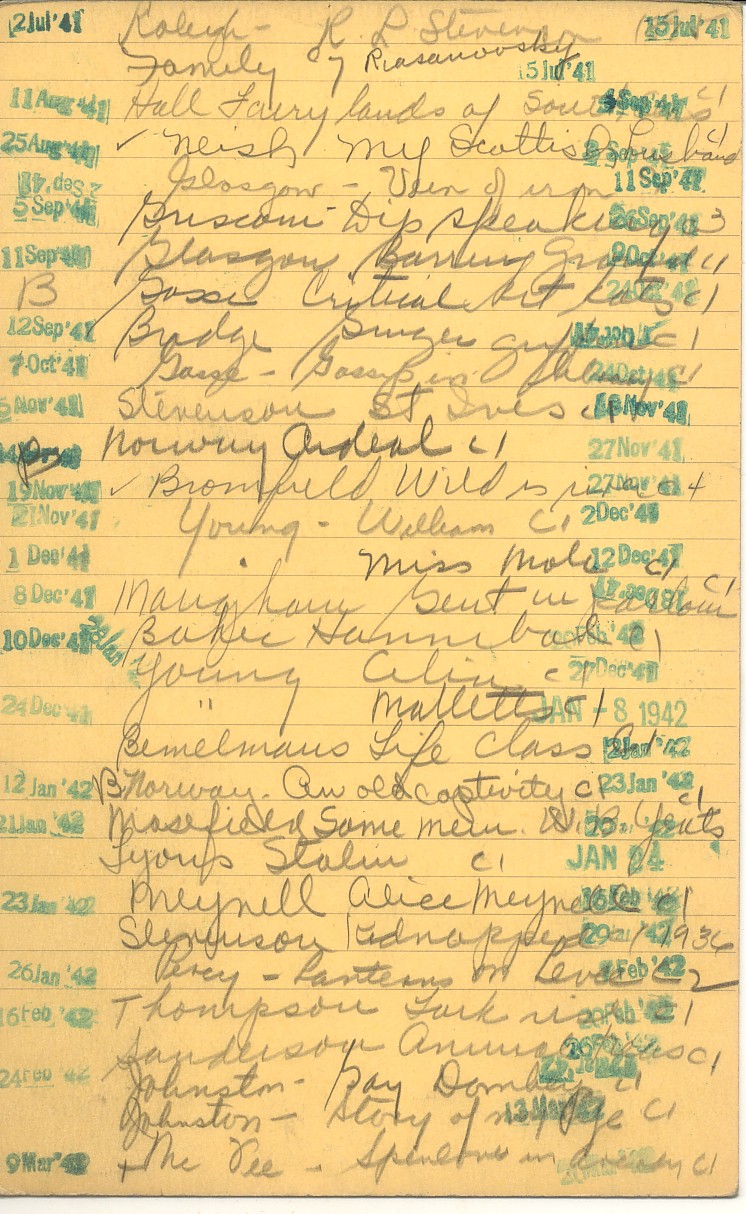 2 Jul '41 Raleigh - R L Stevenson 15 Jul '41
Family c1 Riasanovsky 15 Jul '41
11 Aug '41 Hall Faery lands of South Seas c1 Sep '41
25 Aug '41 ✓ Neish My Scottish Husband c1 Sep '41
2 Sep '41 Glasgow - Vein of iron 11 Sep '41
5 Sep '41 Griscom Dip speaking c3 26 Sep '41
11 Sep '41 Glasgow Barren Ground c1 9 Oct '41
B Gosse Critical Kit Kats c1 24 Oct '41
12 Sep '41 Bridge Singer c1
7 Oct '41 Gosse - Gossip in Library c1 24 Oct '41
5 Nov '41 Stevenson St Ives c1 18 Nov '41
B Norway Ordeal c1 27 Nov '41
19 Nov '41 ✓ Bromfield Wild is river c4 27 Nov '41
21 Nov '41 Young - William c1 2 Dec '41
1 Dec '41 Miss Mole c1 12 Dec '41
8 Dec '41 Maugham Gent in Parlour c1
10 Dec '41 Baker Hannibal c1 Feb '42
Young Celia c1 27 Dec '41
24 Dec '41 " Malletts c1 JAN - 8 1942
Bemelmans Life Class c1 12 Jan '42
12 Jan '42 B Norway. An old captivity c1 23 Jan '42
21 Jan '42 Masefield Some mem. W. B. Yeats c1
Lyons Stalin c1 JAN 24
23 Jan '42 Meynell Alice Meynell c1 16 Feb '42
Stevenson Kidnapped 1936
26 Jan '42 Percy - Lanterns on Levee c2 Feb '42
16 Feb '42 Thompson Lark rise c1 Feb '42
Sanderson Animal tales c1
24 Feb '42 Johnston - Gay Dombeys c1
Johnston - Story of my c1 13 Mar '42
9 Mar '42 + Mc Fee - Spenlove in Arcady c1